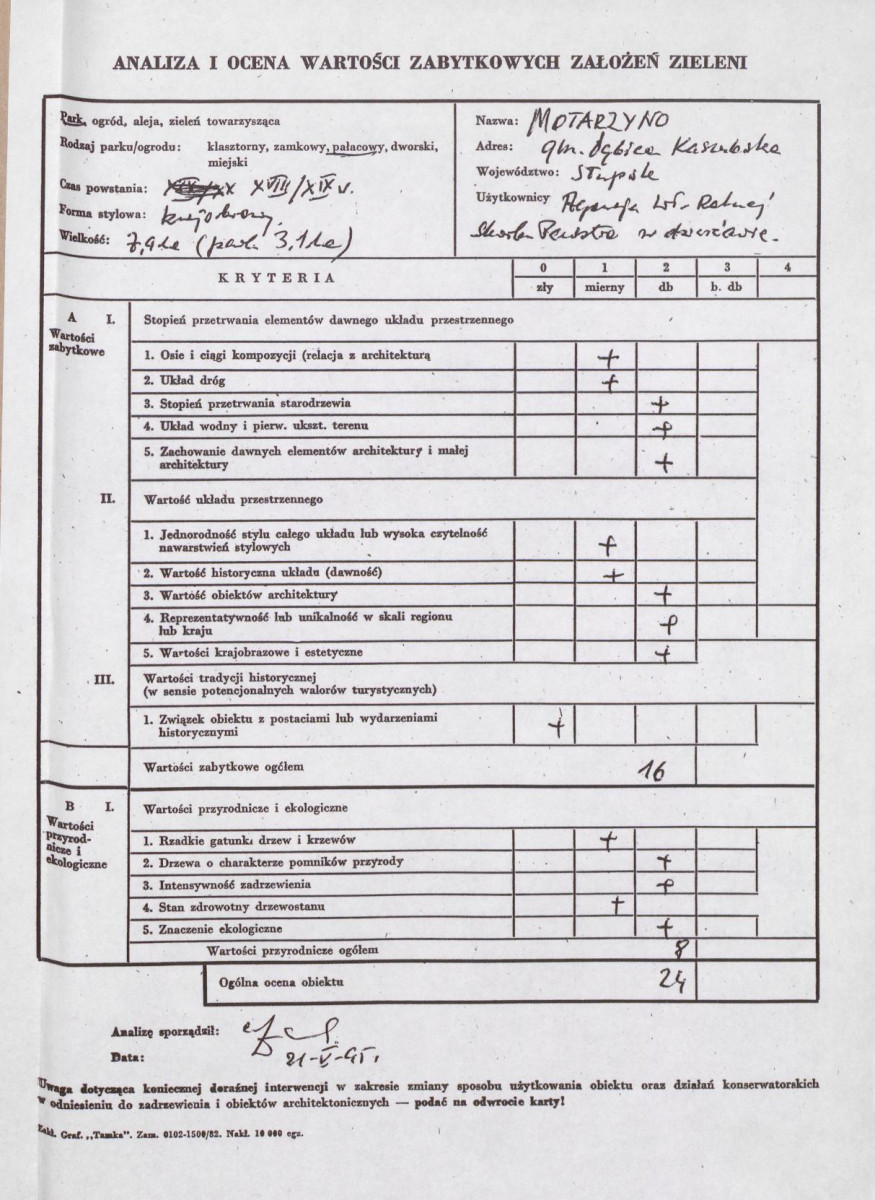 ANALIZA I OCENA WARTOŚCI ZABYTKOWYCH ZAŁOŻEŃ ZIELENI
Park, ogród, aleja, zieleń towarzysząca
Rodzaj parku/ogrodu: klasztorny, zamkowy, pałacowy, dworski,
miejski
Czas powstania: XVIII/XIX w.
Forma stylowa: krajobrazowy
Wielkość: 7,9 ha (park 3,1 ha)
Nazwa: MOTARZYNO
Adres: gm. Dębica Kaszubska
Województwo: Słupsk
Użytkownicy Agencja Wł. Rolnej
Skarbu Państwa w dzierżawie.
KRYTERIA 0 1 2 3 4
zły mierny db b. db
A I. Stopień przetrwania elementów dawnego układu przestrzennego
Wartości
zabytkowe
1. Osie i ciągi kompozycji (relacja z architekturą +
2. Układ dróg +
3. Stopień przetrwania starodrzewia +
4. Układ wodny i pierw. ukszt. terenu +
5. Zachowanie dawnych elementów architektury i małej
architektury +
II. Wartość układu przestrzennego
1. Jednorodność stylu całego układu lub wysoka czytelność
nawarstwień stylowych +
2. Wartość historyczna układu (dawność) +
3. Wartość obiektów architektury +
4. Reprezentatywność lub unikalność w skali regionu
lub kraju +
5. Wartości krajobrazowe i estetyczne +
III. Wartości tradycji historycznej
(w sensie potencjonalnych walorów turystycznych)
1. Związek obiektu z postaciami lub wydarzeniami
historycznymi +
Wartości zabytkowe ogółem 16
B I. Wartości przyrodnicze i ekologiczne
Wartości
przyrod-
nicze i
ekologiczne
1. Rzadkie gatunki drzew i krzewów +
2. Drzewa o charakterze pomników przyrody +
3. Intensywność zadrzewienia +
4. Stan zdrowotny drzewostanu +
5. Znaczenie ekologiczne +
Wartości przyrodnicze ogółem 8
Ogólna ocena obiektu 24
Analizę sporządził:
Data: 21-V-95r.
Uwaga dotycząca koniecznej doraźnej interwencji w zakresie zmiany sposobu użytkowania obiektu oraz działań konserwatorskich
w odniesieniu do zadrzewienia i obiektów architektonicznych — podać na odwrocie karty!
Zakł. Graf. „Tamka”. Zam. 0102-1500/82. Nakł. 10 000 egz.